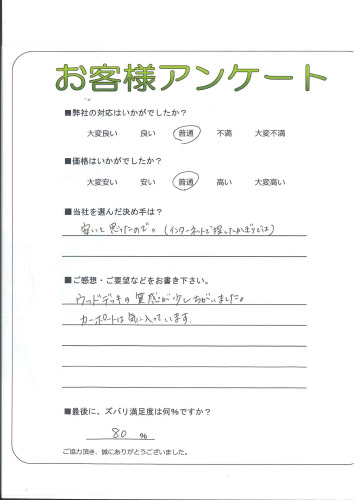 お客様アンケート
■弊社の対応はいかがでしたか？
大変良い 良い 普通 不満 大変不満
■価格はいかがでしたか？
大変安い 安い 普通 高い 大変高い
■当社を選んだ決め手は？
安いと思ったので。(インターネットで探したかぎりでは)
■ご感想・ご要望などをお書き下さい。
ウッドデッキの質感が少しちがいました。
カーポートは気に入っています。
■最後に、ズバリ満足度は何％ですか？
80 ％
ご協力頂き、誠にありがとうございました。